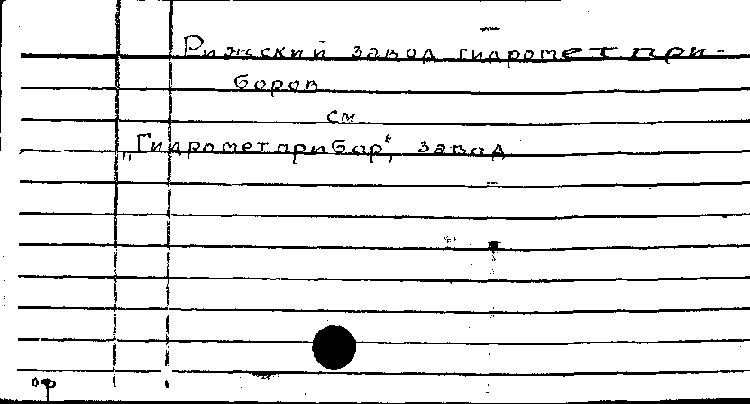 Рижский завод гидрометпри-
боров
см.
„Гидрометприбор", завод
ор